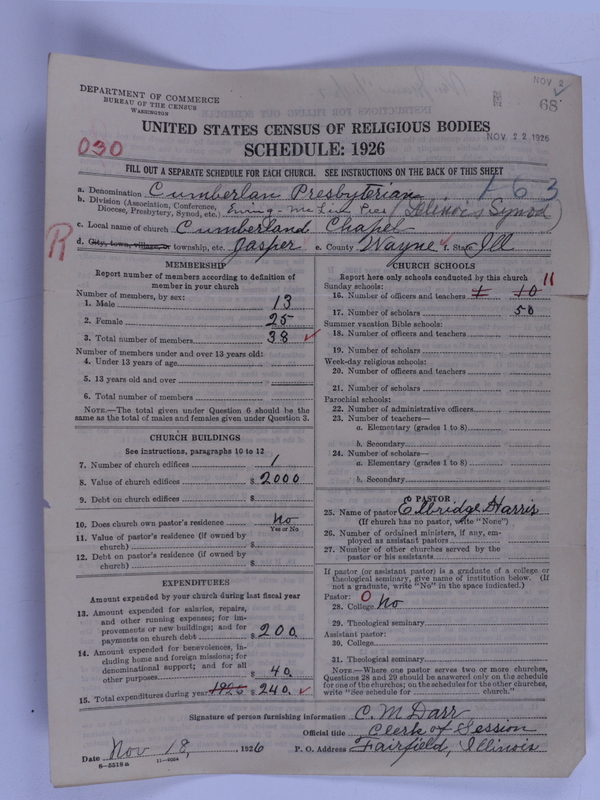 NOV 2
68
DEPARTMENT OF COMMERCE
BUREAU OF THE CENSUS
WASHINGTON
UNITED STATES CENSUS OF RELIGIOUS BODIES
NOV 22 1926
SCHEDULE: 1926
030
FILL OUT A SEPARATE SCHEDULE FOR EACH CHURCH. SEE INSTRUCTIONS ON THE BACK OF THIS SHEET
a. Denomination Cumberlan Presbyterian
b. Division (Association, Conference,
Diocese, Presbytery, Synod, etc.) Ewing-McLin Pres (Illinois Synod)
c. Local name of church Cumberland Chapel
d. City, town, village, or township, etc. Jasper e. County Wayne f. State Ill
R
MEMBERSHIP
Report number of members according to definition of
member in your church
Number of members, by sex:
1. Male 13
2. Female 25
3. Total number of members 38
Number of members under and over 13 years old:
4. Under 13 years of age
5. 13 years old and over
6. Total number of members
NOTE.—The total given under Question 6 should be the
same as the total of males and females given under Question 3.
CHURCH BUILDINGS
See instructions, paragraphs 10 to 12
7. Number of church edifices 1
8. Value of church edifices $ 2000
9. Debt on church edifices $
10. Does church own pastor's residence No
Yes or No
11. Value of pastor's residence (if owned by
church) $
12. Debt on pastor's residence (if owned by
church) $
EXPENDITURES
Amount expended by your church during last fiscal year
13. Amount expended for salaries, repairs,
and other running expenses; for im-
provements or new buildings; and for
payments on church debt $ 200.
14. Amount expended for benevolences, in-
cluding home and foreign missions; for
denominational support; and for all
other purposes $ 40.
15. Total expenditures during year 1925 $ 240.
CHURCH SCHOOLS
Report here only schools conducted by this church
Sunday schools:
16. Number of officers and teachers 1 10 11
17. Number of scholars 50
Summer vacation Bible schools:
18. Number of officers and teachers
19. Number of scholars
Week-day religious schools:
20. Number of officers and teachers
21. Number of scholars
Parochial schools:
22. Number of administrative officers
23. Number of teachers—
a. Elementary (grades 1 to 8)
b. Secondary
24. Number of scholars—
a. Elementary (grades 1 to 8)
b. Secondary
PASTOR
25. Name of pastor Elbridge Harris
(If church has no pastor, write "None")
26. Number of ordained ministers, if any, em-
ployed as assistant pastors
27. Number of other churches served by the
pastor or his assistants
If pastor (or assistant pastor) is a graduate of a college or
theological seminary, give name of institution below. (If
not a graduate, write "No" in the space indicated.)
Pastor: 0
28. College No
29. Theological seminary
Assistant pastor:
30. College
31. Theological seminary
NOTE.—Where one pastor serves two or more churches,
Questions 28 and 29 should be answered only on the schedule
for one of the churches; on the schedules for the other churches,
write "See schedule for church."
Signature of person furnishing information C. M. Darr
Official title Clerk of Session
Date Nov 18, 1926 P. O. Address Fairfield, Illinois
8-5518a 11-9554